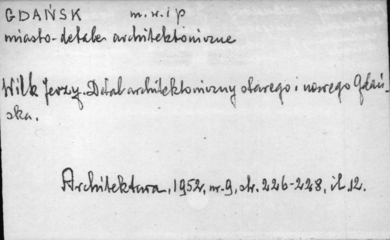 GDAŃSK m.w.i p
miasto-detale architektoniczne
Wilk Jerzy. Detal architektoniczny starego i nowego Gdań-
ska.
Architektura, 1952, nr. 9, str. 226-228, il 12.